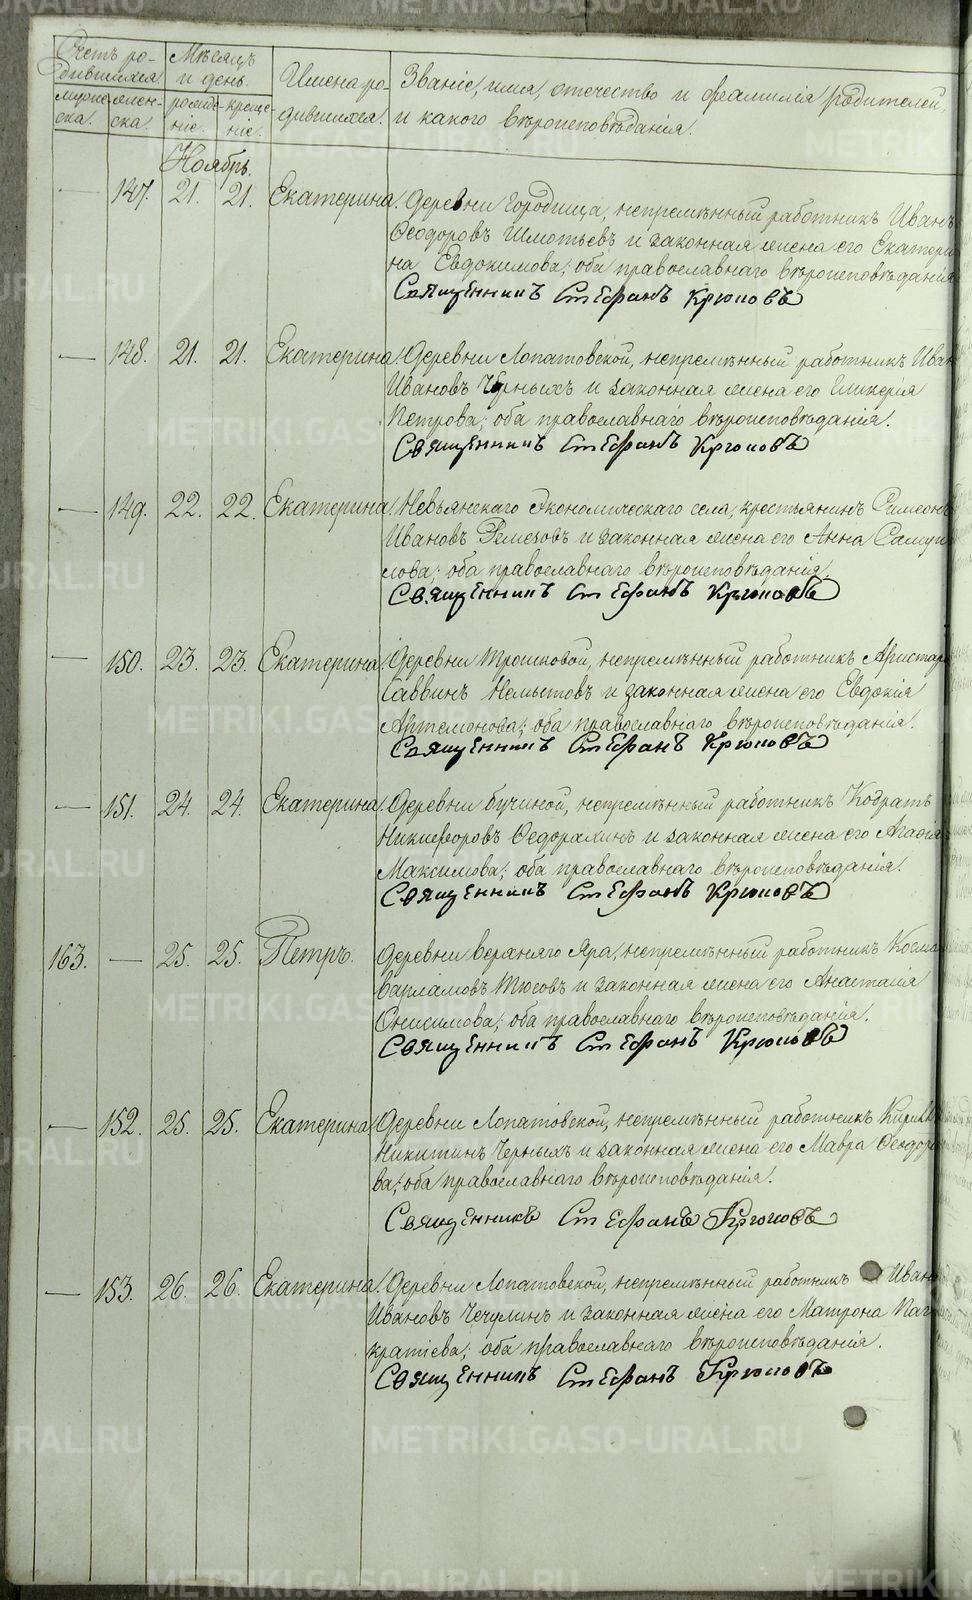 Счетъ ро-
дившихся.
Мѣсяцъ
и день.
Имена ро-
дившихся.
Званіе, имя, отечество и фамилія родителей,
и какого вѣроисповѣданія.
мужес-
ска.
женс-
ска.
рожде-
ніе.
креще-
ніе.
Ноябрь.
— 147. 21. 21. Екатерина. Деревни Городища, непремѣнный работникъ Иванъ
Ѳеодоровъ и законная жена его Екатери
на Евдокимова; оба православнаго вѣроисповѣданія.
Священникъ Стефанъ Крюковъ
— 148. 21. 21. Екатерина Деревни Лопатовской, непремѣнный работникъ Иван
Ивановъ Черныхъ и законная жена его Гликерія
Петрова; оба православнаго вѣроисповѣданія.
Священникъ Стефанъ Крюковъ
— 149. 22. 22. Екатерина Невьянскаго экономическаго села, крестьянинъ Симеонъ
Ивановъ Ремезовъ и законная жена его Анна Самуи
лова; оба православнаго вѣроисповѣданія.
Священникъ Стефанъ Крюковъ
— 150. 23. 23. Екатерина Деревни Трошковой, непремѣнный работникъ Аристар
Саввинъ и законная жена его Евдокія
Артемонова; оба православнаго вѣроисповѣданія.
Священникъ Стефанъ Крюковъ
— 151. 24. 24. Екатерина Деревни Бучиной, непремѣнный работникъ Кодратъ
Никифоровъ Ѳедорахинъ и законная жена его Агафія
Максимова; оба православнаго вѣроисповѣданія.
Священникъ Стефанъ Крюковъ
163. — 25. 25. Петръ. Деревни Верхняго Яра, непремѣнный работникъ Косма
Варламовъ Тюсовъ и законная жена его Анастасія
Онисимова; оба православнаго вѣроисповѣданія.
Священникъ Стефанъ Крюковъ
— 152. 25. 25. Екатерина Деревни Лопатовской, непремѣнный работникъ Кирил
Никитинъ Черныхъ и законная жена его Мавра Ѳеодоро
ва; оба православнаго вѣроисповѣданія.
Священникъ Стефанъ Крюковъ
— 153. 26. 26. Екатерина Деревни Лопатовской, непремѣнный работникъ Иван
Ивановъ Чечулинъ и законная жена его Матрона Пан
кратіева; оба православнаго вѣроисповѣданія.
Священникъ Стефанъ Крюковъ
METRIKI.GASO-URAL.RU